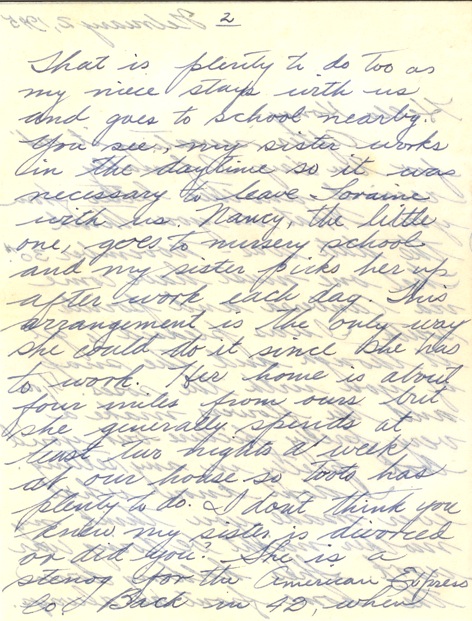 2
That is plenty to do too as
my niece stays with us
and goes to school nearby.
You see, my sister works
in the daytime so it was
necessary to leave Loraine
with us. Nancy, the little
one, goes to nursery school
and my sister picks her up
after work each day. This
arrangement is the only way
she could do it since she has
to work. Her home is about
four miles from ours but
she generally spends at
least two nights a week
at our house so Toots has
plenty to do. I don't think you
knew my sister is divorced
or did you. She is a
stenog for the American Express
Co. Back in 42, when